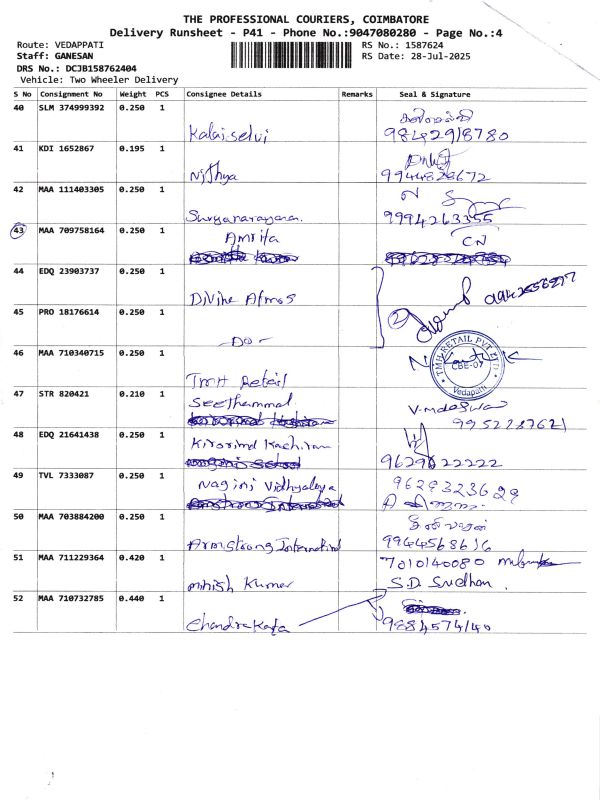 THE PROFESSIONAL COURIERS, COIMBATORE
Delivery Runsheet - P41 - Phone No.:9047080280 - Page No.:4
Route: VEDAPPATI
RS No.: 1587624
Staff: GANESAN
RS Date: 28-Jul-2025
DRS No.: DCJB158762404
Vehicle: Two Wheeler Delivery
S No Consignment No Weight PCS Consignee Details Remarks Seal & Signature
40 SLM 374999392 0.250 1
Kalaiselvi 9842918780
41 KDI 1652867 0.195 1
Nithya 9944828672
42 MAA 111403305 0.250 1
Suryanarayana. 9994263355
43 MAA 709758164 0.250 1
Amrita CN
44 EDQ 23903737 0.250 1
Divine Atmos
45 PRO 18176614 0.250 1
2
-Do-
46 MAA 710340715 0.250 1
TMH RETAIL PVT LTD
CBE-07
Vedapatti
TMH Retail
47 STR 820421 0.210 1
Seethammal
48 EDQ 21641438 0.250 1
9629822222
49 TVL 7333087 0.250 1
Nagini Vidhyalaya
50 MAA 703884200 0.250 1
Armstrong International 9944568616
51 MAA 711229364 0.420 1
7010140080
Mitish Kumar S.D. Sudhan.
52 MAA 710732785 0.440 1
Chandrakala 9884574140